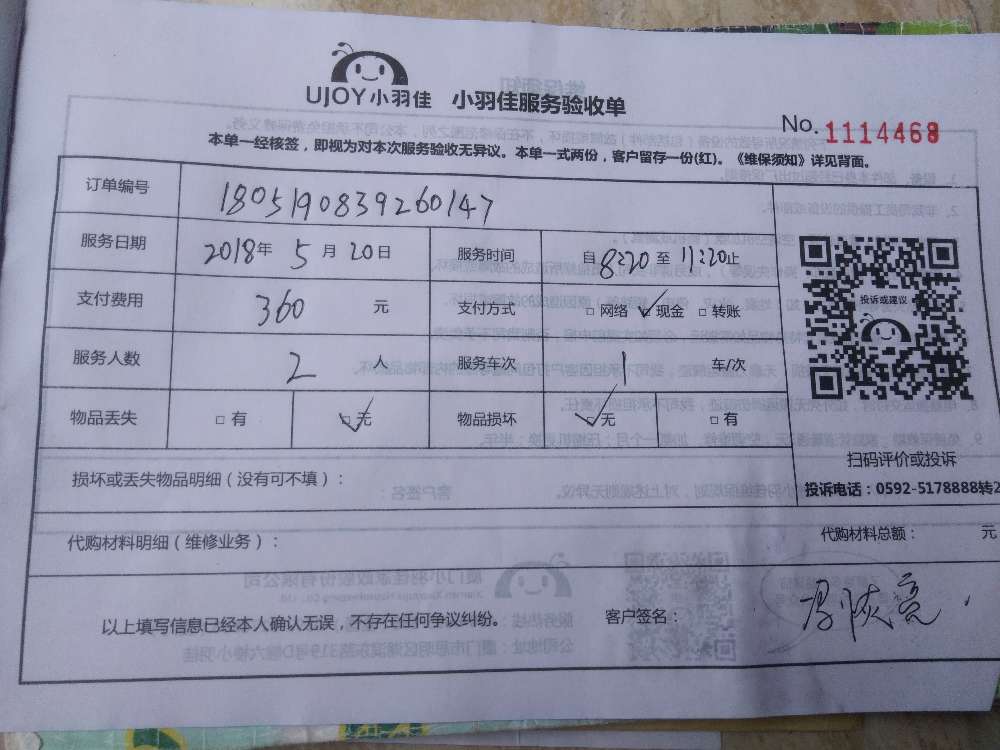 UJOY小羽佳 小羽佳服务验收单
No. 1114468
本单一经核签，即视为对本次服务验收无异议。本单一式两份，客户留存一份(红)。《维保须知》详见背面。
订单编号 1805190839260147
服务日期 2018年 5 月 20日 服务时间 自 8:20 至 11:20止
支付费用 360 元 支付方式 □网络 ☑现金 □转账
投诉或建议
服务人数 2 人 服务车次 1 车/次
物品丢失 □有 ☑无 物品损坏 ☑无 □有
扫码评价或投诉
损坏或丢失物品明细（没有可不填）：
投诉电话：0592-5178888转2
代购材料明细（维修业务）： 代购材料总额： 元
以上填写信息已经本人确认无误，不存在任何争议纠纷。 客户签名：